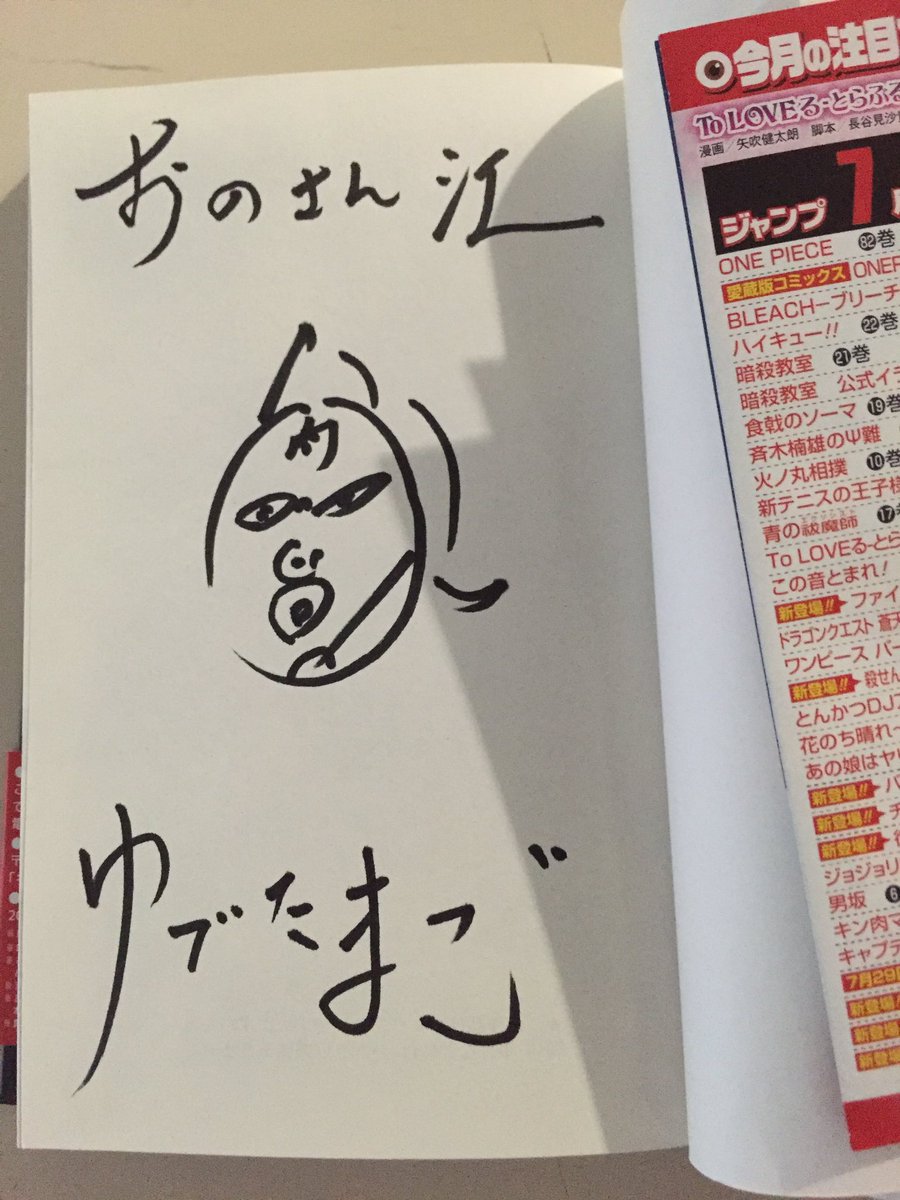 おのさん江
肉
ゆでたまご
今月の注目
To LOVEる-とらぶる
漫画/矢吹健太朗 脚本/長谷見沙
ジャンプ 7
ONE PIECE 82巻
愛蔵版コミックス ONE
BLEACHーブリーチ
ハイキュー!! 22巻
暗殺教室 21巻
暗殺教室 公式イ
食戟のソーマ 19巻
斉木楠雄のΨ難
火ノ丸相撲 10巻
新テニスの王子様
青の祓魔師 17
To LOVEる-とら
この音とまれ!
新登場!! ファイ
ドラゴンクエスト 蒼天
ワンピース パー
新登場!! 殺せん
とんかつDJア
花のち晴れ
あの娘はヤ
新登場!!
新登場!! チ
新登場!!
ジョジョリ
男坂 6
キン肉マ
キャプテ
7月29日
新登場!
新登場
新登場